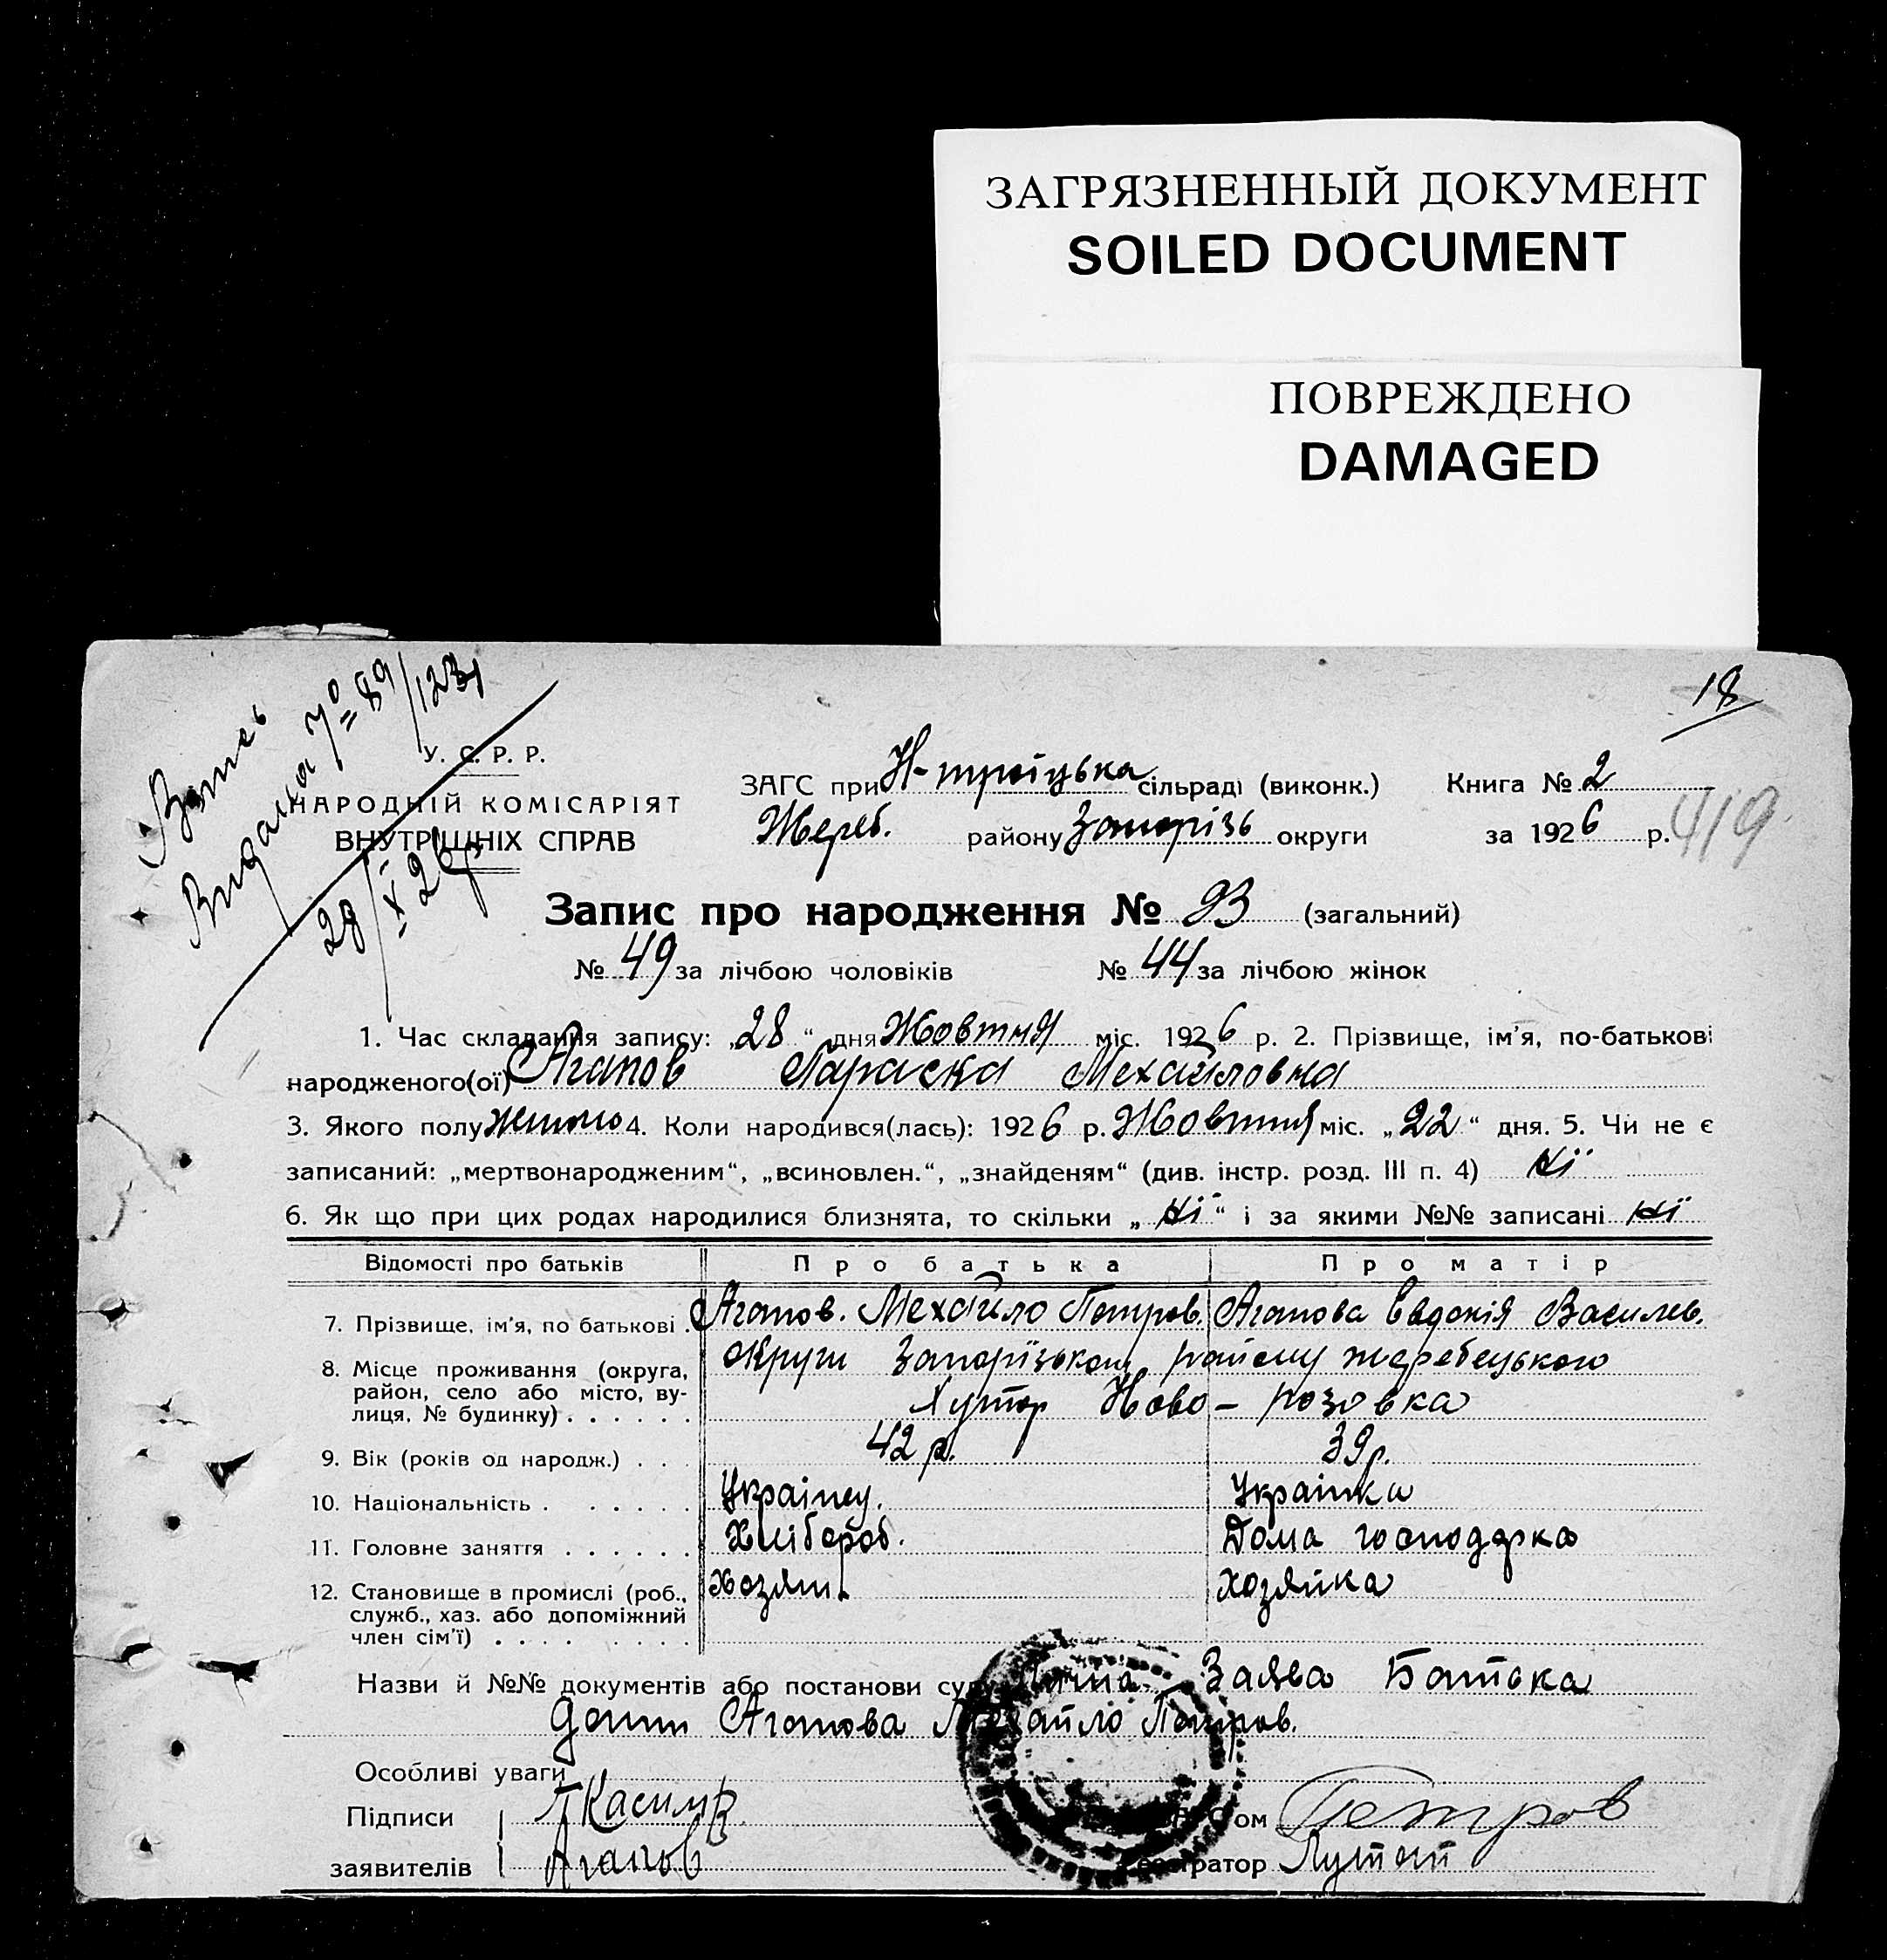 ЗАГРЯЗНЕННЫЙ ДОКУМЕНТ
SOILED DOCUMENT
ПОВРЕЖДЕНО
DAMAGED
18
Видана № 89/1231
28/X 26р
У. С. Р. Р.
НАРОДНІЙ КОМІСАРІЯТ
ВНУТРІШНІХ СПРАВ
ЗАГС при Н-троїцька сільраді (виконк.) Книга № 2
Жереб. району Запорізь округи за 1926 р. 419
Запис про народження № 93 (загальний)
№ 49 за лічбою чоловіків № 44 за лічбою жінок
1. Час складання запису: „28“ дня Жовтня міс. 1926 р. 2. Прізвище, ім’я, по-батькові
народженого(ої) Агапов Параска Мехайловна
3. Якого полу 4. Коли народився(лась): 1926 р. Жовтня міс. „22“ дня. 5. Чи не є
записаний: „мертвонародженим“, „всиновлен.“, „знайденям“ (див. інстр. розд. III п. 4) Ні
6. Як що при цих родах народилися близнята, то скільки „Ні“ і за якими №№ записані Ні
Відомості про батьків Про батька Про матір
7. Прізвище, ім’я, по батькові . Агапов. Мехайло Петров. Агапова Евдокія Василев.
8. Місце проживання (округа, район, село або місто, вулиця, № будинку) . . . . . . Округи Запорізькои, району жеребецького
Хутор Ново-розовка
9. Вік (років од народж.) . . . 42 р. 39 р.
10. Національність . . . . . . Українец. Українка
11. Головне заняття . . . . . . Хлібороб. Дома господарка
12. Становище в промислі (роб., служб., хаз. або допоміжний член сім’ї) . . . . . . . . Хозяин Хозяйка
Назви й №№ документів або постанови суду Заява Батька
Агапова Мехайло Петров.
Особливі уваги
Підписи
заявителів Агапов
ом Петров
Реєстратор